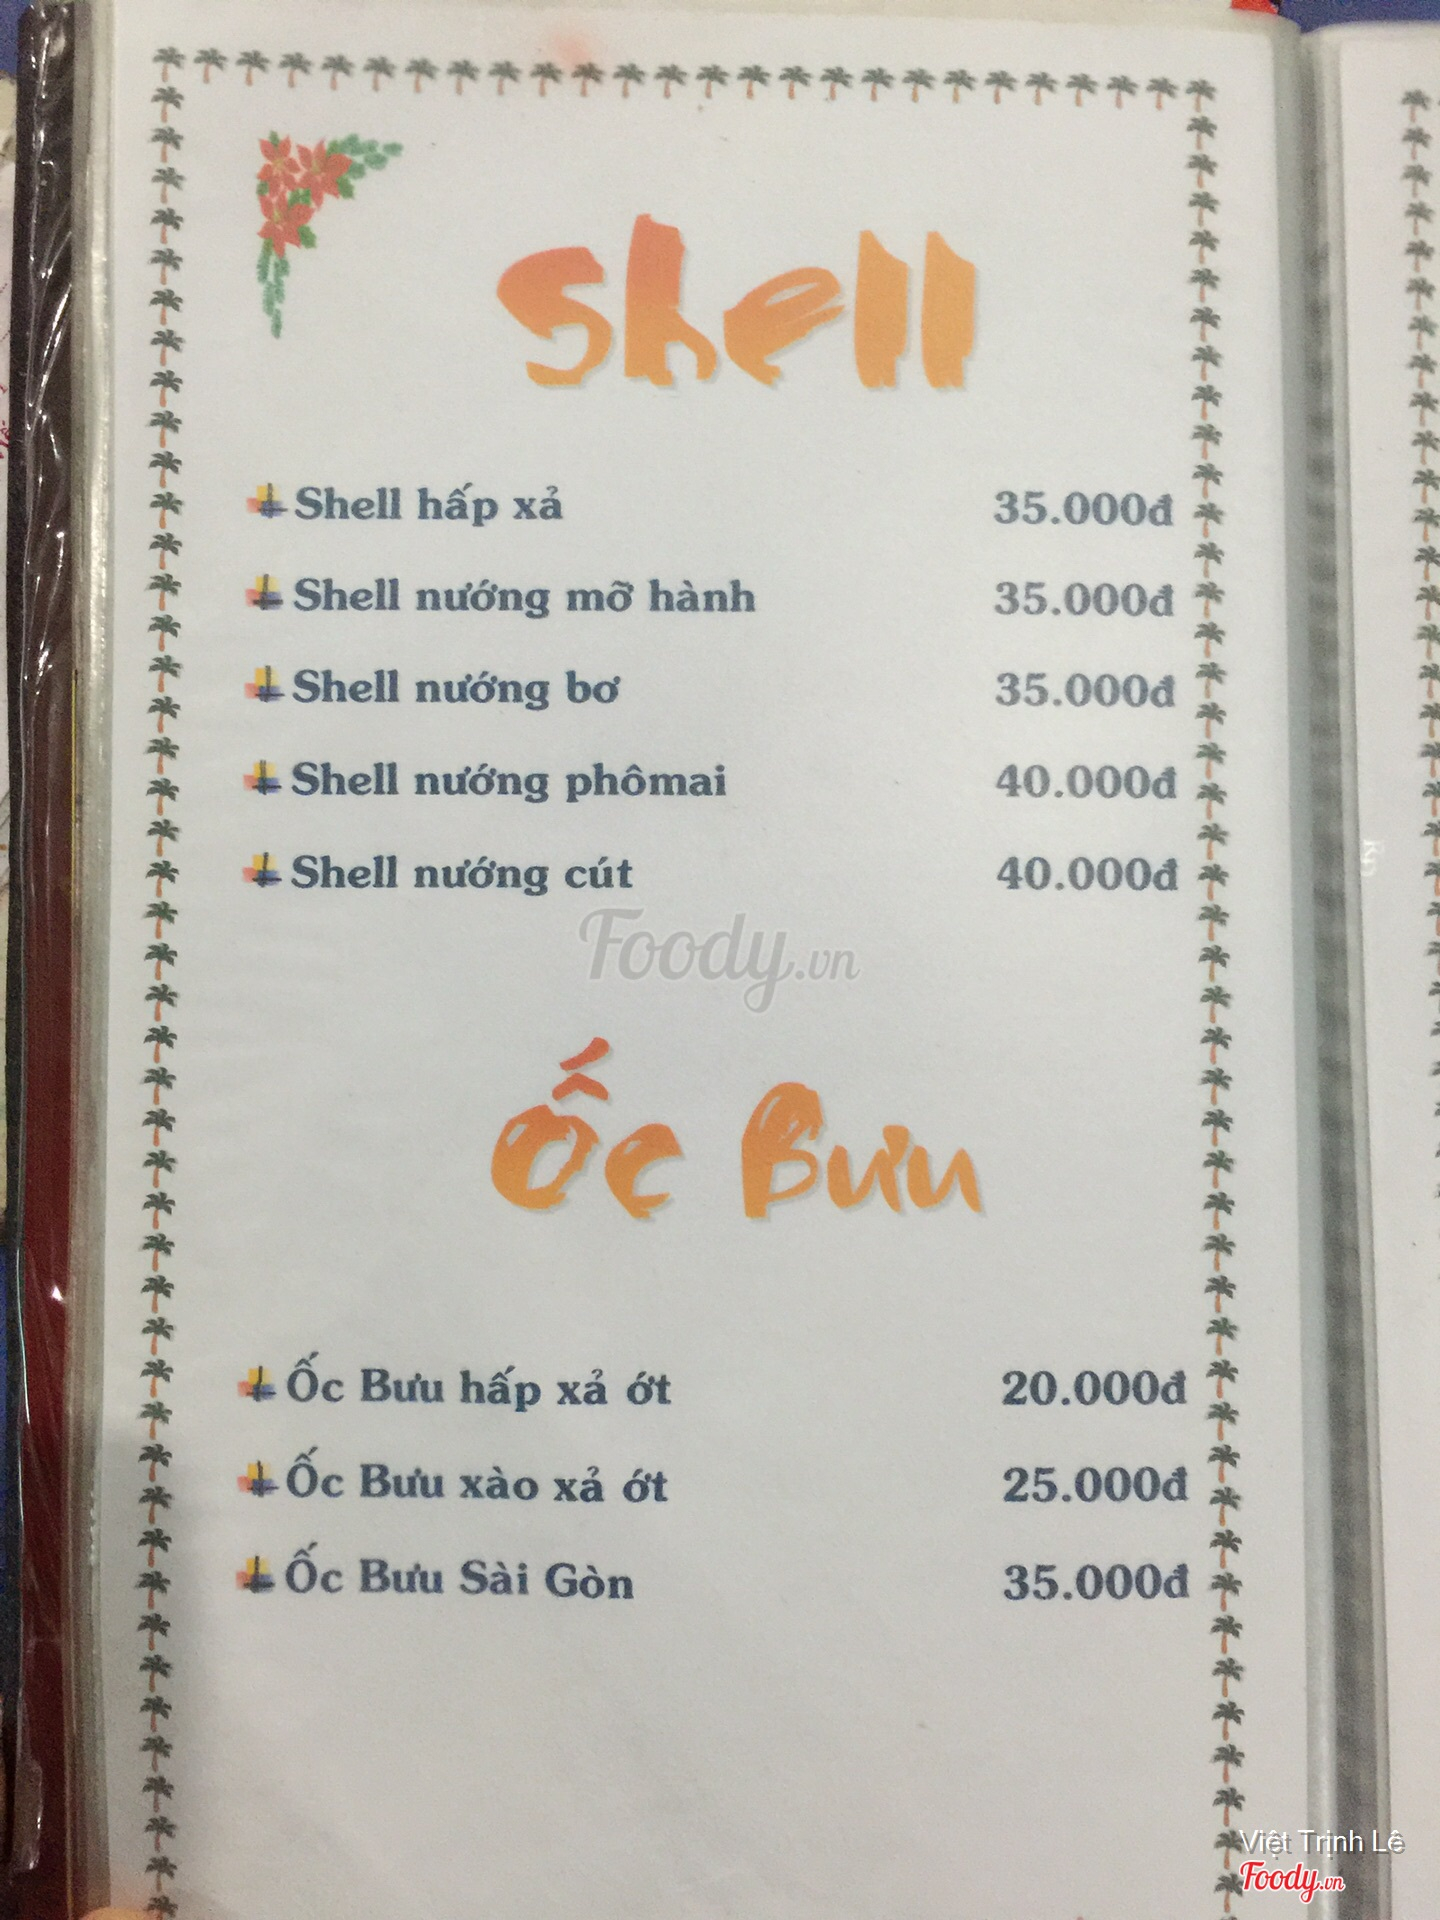 Shell
Shell hấp xả 35.000đ
Shell nướng mỡ hành 35.000đ
Shell nướng bơ 35.000đ
Shell nướng phômai 40.000đ
Shell nướng cút 40.000đ
Foody.vn
Ốc Bưu
Ốc Bưu hấp xả ớt 20.000đ
Ốc Bưu xào xả ớt 25.000đ
Ốc Bưu Sài Gòn 35.000đ
Việt Trịnh Lê
Foody.vn